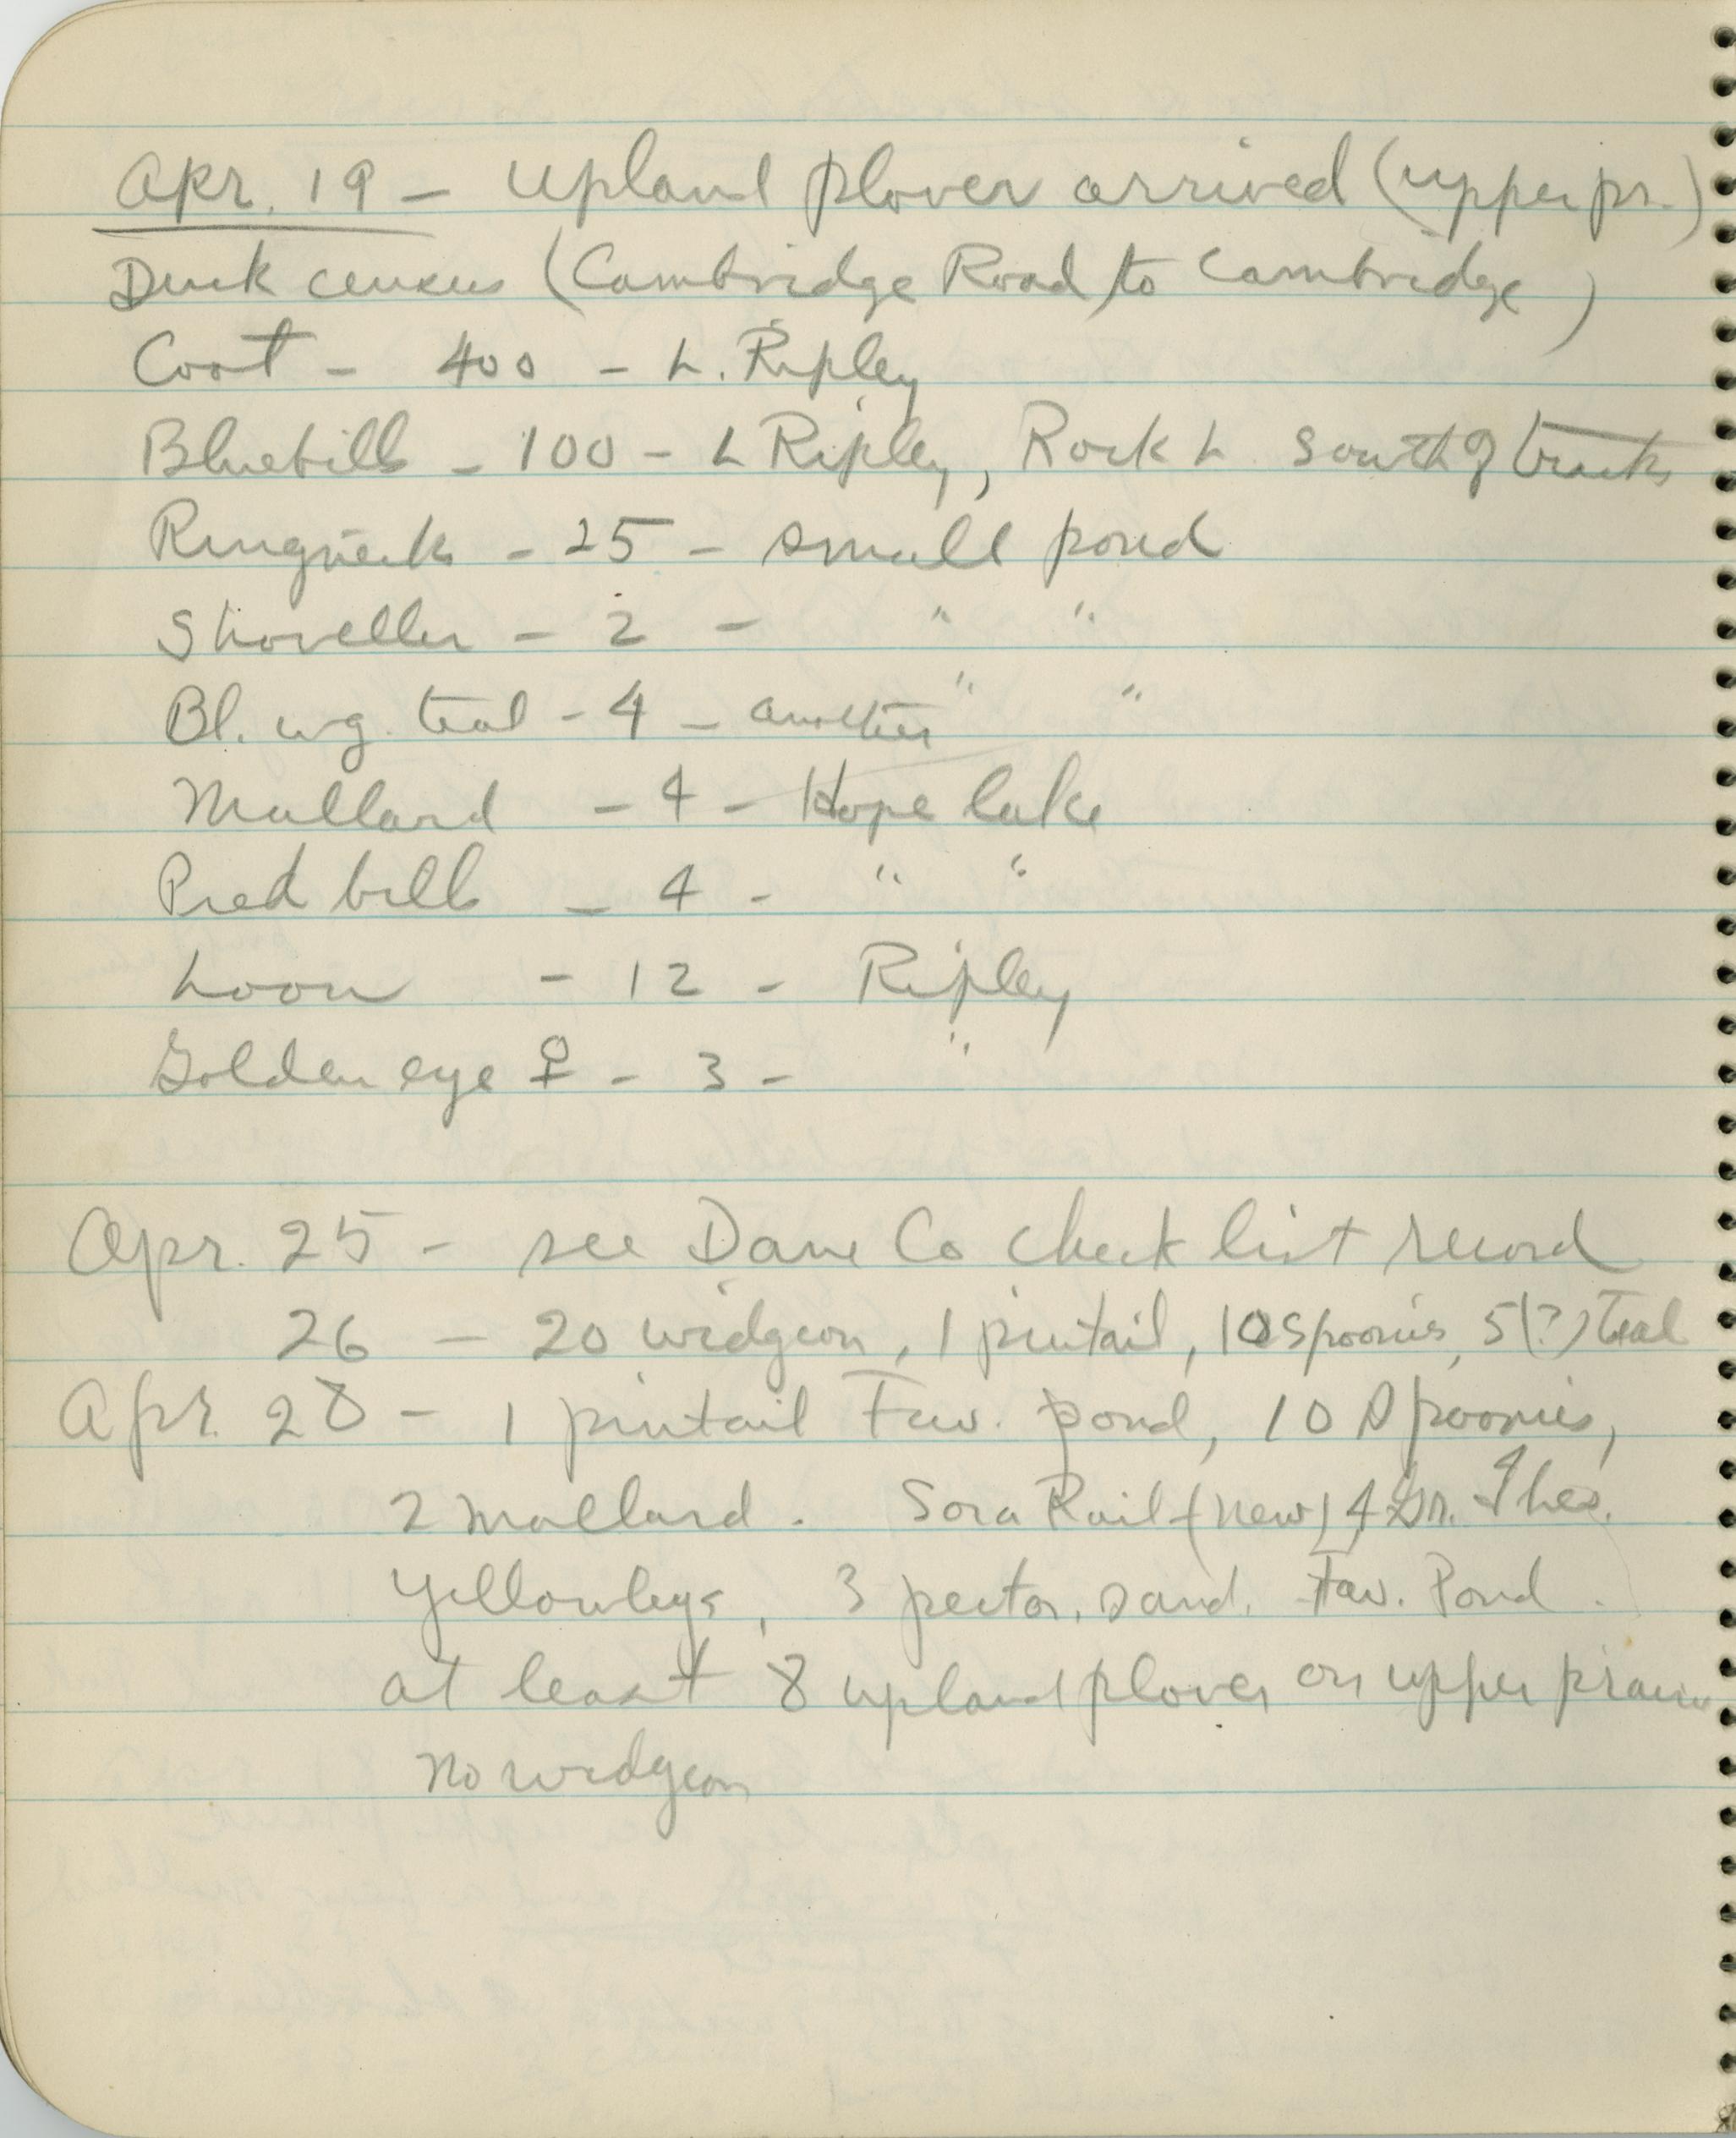 Apr. 19 – Upland plover arrived (upper pr.)
Duck census (Cambridge Road to Cambridge)
Coot – 400 – L. Ripley
Bluebill – 100 – L Ripley, Rock L south of track
Ringneck – 25 – small pond
Shoveller – 2 – " "
Bl. wg. teal – 4 – another " "
Mallard – 4 – Hope lake
Pied bill – 4 – " "
Loon – 12 – Ripley
Golden eye ♀ – 3 – "
Apr. 25 – see Dane Co check list record
26 – 20 widgeon, 1 pintail, 10 spoonies, 5(?) teal
Apr. 28 – 1 pintail Fav. pond, 10 spoonies,
2 mallard. Sora Rail (new) 4 Gr.
Yellowlegs, 3 pector. sand. Fav. Pond.
at least 8 upland plover on upper prairie
No widgeon